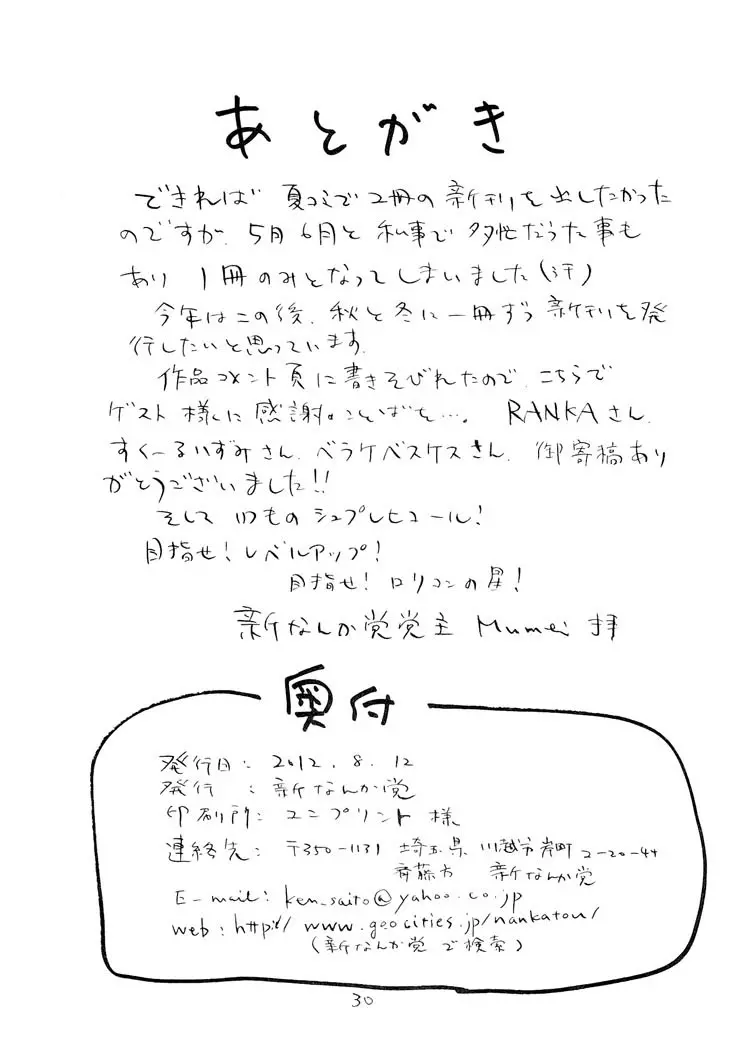 あとがき
できれば 夏コミで2冊の新刊を出したかった
のですが、5月6月と 私事で多忙だった事も
あり 1冊のみとなってしまいました(汗)
今年はこの後、秋と冬に一冊ずつ新刊を発
行したいと思っています。
作品コメント頁に書きそびれたので、こちらで
ゲスト様に感謝のことばを…。 RANKAさん、
すくーるいずみさん、ベラケベスケスさん、御寄稿あり
がとうございました!!
そして いつもの シュプレヒコール!
目指せ!レベルアップ!
目指せ!ロリコンの星!
新なんか党党主 Mumei 拝
奥付
発行日: 2012.8.12
発行 : 新なんか党
印刷所: ユニプリント様
連絡先: 〒350-1131 埼玉県 川越市岸町2-20-44
斉藤方 新なんか党
E-mail: ken_saito@yahoo.co.jp
web: http:// www.geocities.jp/nankatou/
(新なんか党 で検索)
30